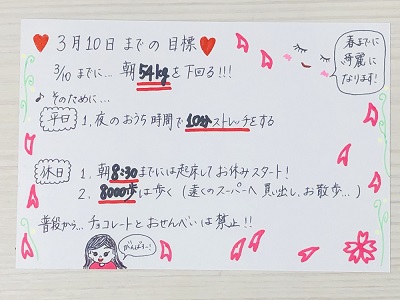 ♥3月10日までの目標♥
春までに
綺麗に
なります!
3/10までに… 朝54kgを下回る!!!
♪そのために…
平日 1. 夜のおうち時間で10分ストレッチをする
休日 1. 朝8:30までには起床してお休みスタート!
2. 8000歩は歩く(遠くのスーパーへ買い出し、お散歩…)
普段から… チョコレートとおせんべいは禁止!!
がんばろ〜!